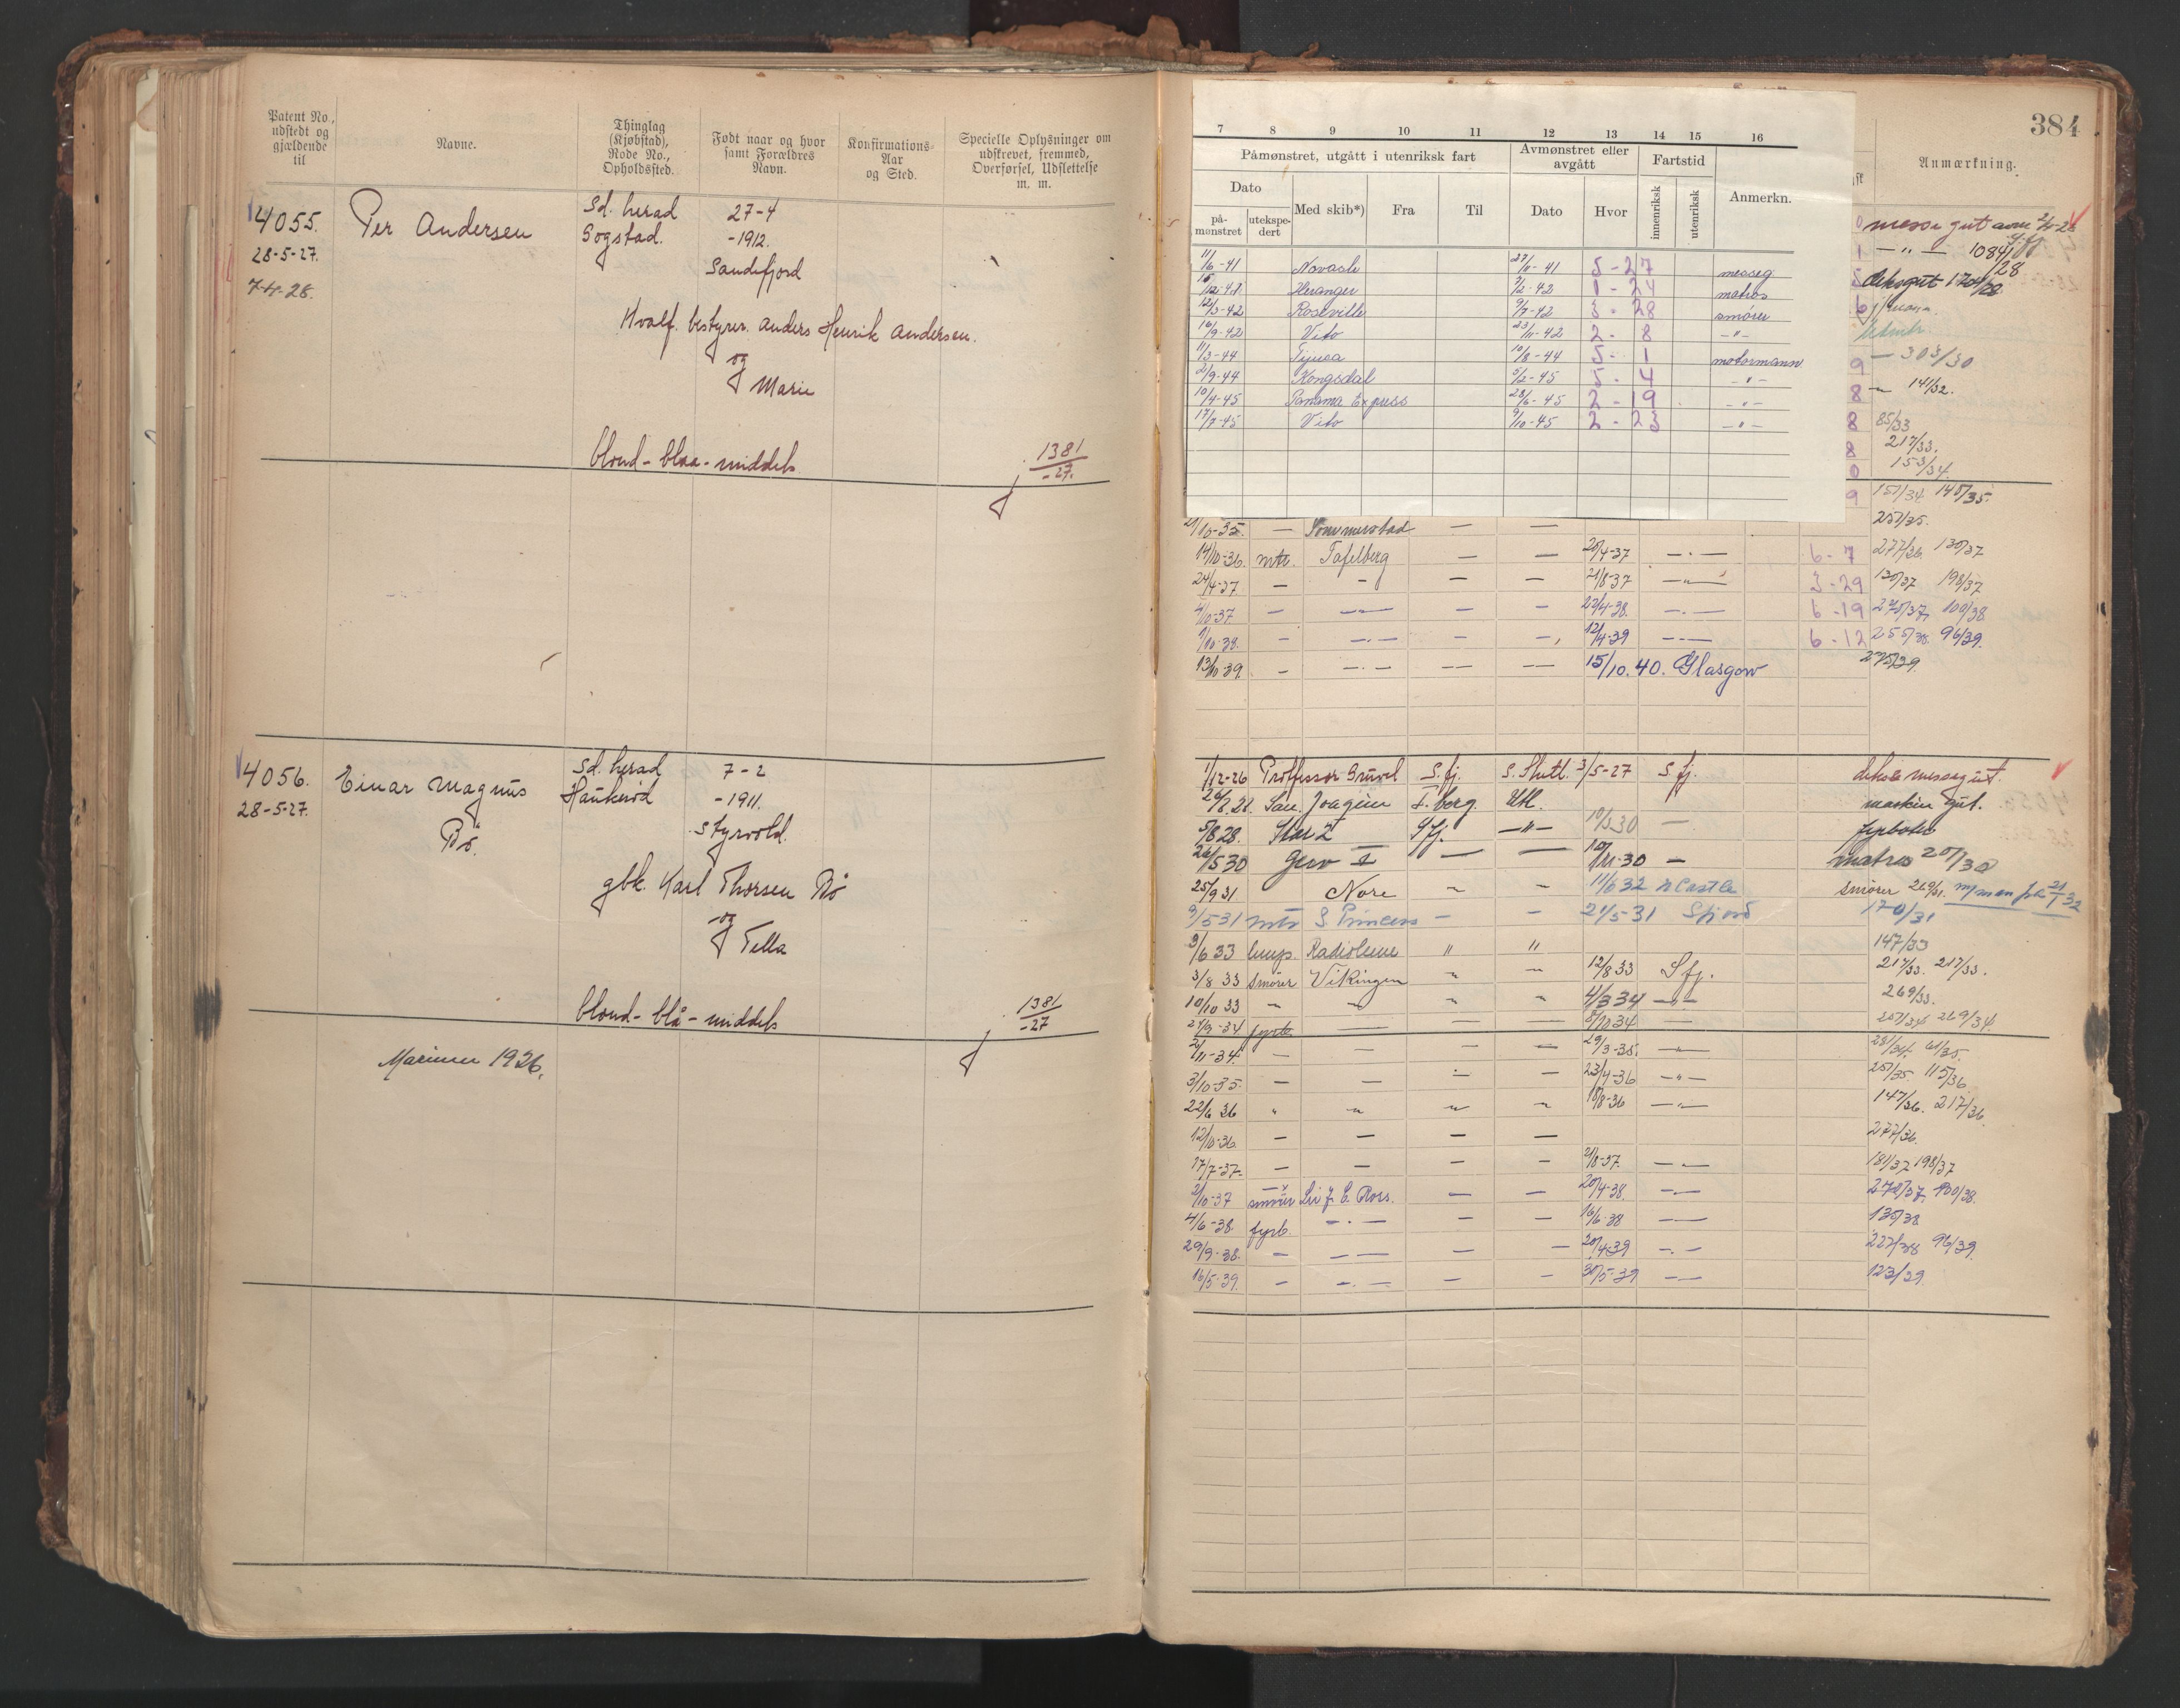 Patent No., udstedt og gjældende til
Navne.
Thinglag (Kjøbstad), Rode No., Opholdssted.
Født naar og hvor samt Forældres Navn.
Konfirmations-Aar og Sted.
Specielle Oplysninger om udskrevet, fremmed, Overførsel, Udslettelse m. m.
4055.
28-5-27.
7-4-28.
Per Andersen
Sd. herad
Sogstad.
27-4
-1912.
Sandefjord
Hvalf. bestyrer Anders Henrik Andersen.
og
Marie
blond - blaa - middels
1381
-27.
4056.
28-5-27.
Einar Magnus
Bö.
Sd. herad
Haukeröd
7-2
-1911.
Styrvold.
gbk. Karl Thorsen Bö
og
Tella
blond - blå - middels
1381
-27
Mariner 1926.
384
7 8 9 10 11 12 13 14 15 16
Påmønstret, utgått i utenriksk fart
Avmønstret eller avgått
Fartstid
Anmerkn.
Anmærkning.
Dato
Med skib*) Fra Til Dato Hvor innenriksk utenriksk
på-mønstret utekspe-dert
11/6-41 27/11-41 5-27 messeg
Heranger 9/2-42 1-24 matros
12/3-42 Roseville 9/7-42 3-28 smører
16/9-42 Vito 23/11-42 2-8 -"-
11/3-44 Tijuca 10/8-44 5-1 motormann
2/9-44 Kongsdal 5/2-45 5-4 -"-
10/4-45 Panama Express 28/6-45 2-19 -"-
17/7-45 Vito 9/10-45 2-23 -"-
messegut
-"- 1084/
303/30
141/32.
85/33
217/33.
153/34.
151/34 145/35.
257/35.
21/10-35. — Sommerstad — —
14/10-36. mtr. Tafelberg — — 20/4-37 -"- 6-7 277/36 130/37
24/4-37 — — — — 21/8-37 -"- 3-29 130/37 198/37
4/10-37 — -"- — — 23/4-38. -"- 6-19 275/37 100/38
1/10-38. — -"- — — 12/4-39 -"- 6-12 255/38. 96/39.
13/10-39. — -"- — — 15/10.40. Glasgow 275/39
1/12-26 Proffessor Gruvel S.fj. S. Shetl. 3/5-27 S.fj. messegut.
San Joaquin t.berg Utl. maskin gut.
5/8 28. Star I Sfj. -"- 10/5 30 — fyrböter
26/5 30 Gerv I — — 10/11-30 — matros 207/30
25/9 31 Nore " " 11/6 32 N Castle smører 269/31.
9/5 31 mtr S. Princess — — 21/5-31 Sfjord 170/31
3/6 33 lemp. Radioleine " " 147/33
3/8 33 smører Vikingen " " 12/8 33 Sfj. 217/33. 217/33.
10/10 33 " " " " 4/3 34 -"- 269/33.
27/9-34 fyrb. — — — 5/10 34 — 207/34 269/34.
2/11-34. — — — — 29/3-35. -"- 281/34. 61/35.
3/10-35. — — — — 23/4-36 -"- 257/35. 115/36.
22/6 36 " " " " 18/8-36 -"- 147/36. 217/36.
12/10-36. — — — — 277/36.
17/7-37- — — — — 21/8-37. -"- 181/37 198/37
2/10-37 smører Sir J. C. Ross. — — 20/4-38. -"- 272/37. 100/38.
4/6-38 fyrb. -"- — — 16/6-38 — 135/38
29/9-38. — — — — 20/4-39 -"- 227/38 96/39.
16/5-39. — -"- — — 30/5-39 — 123/39.